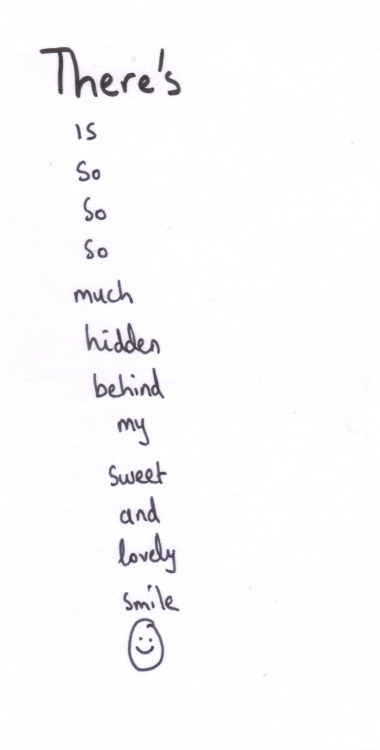 There's
is
So
So
So
much
hidden
behind
my
sweet
and
lovely
smile